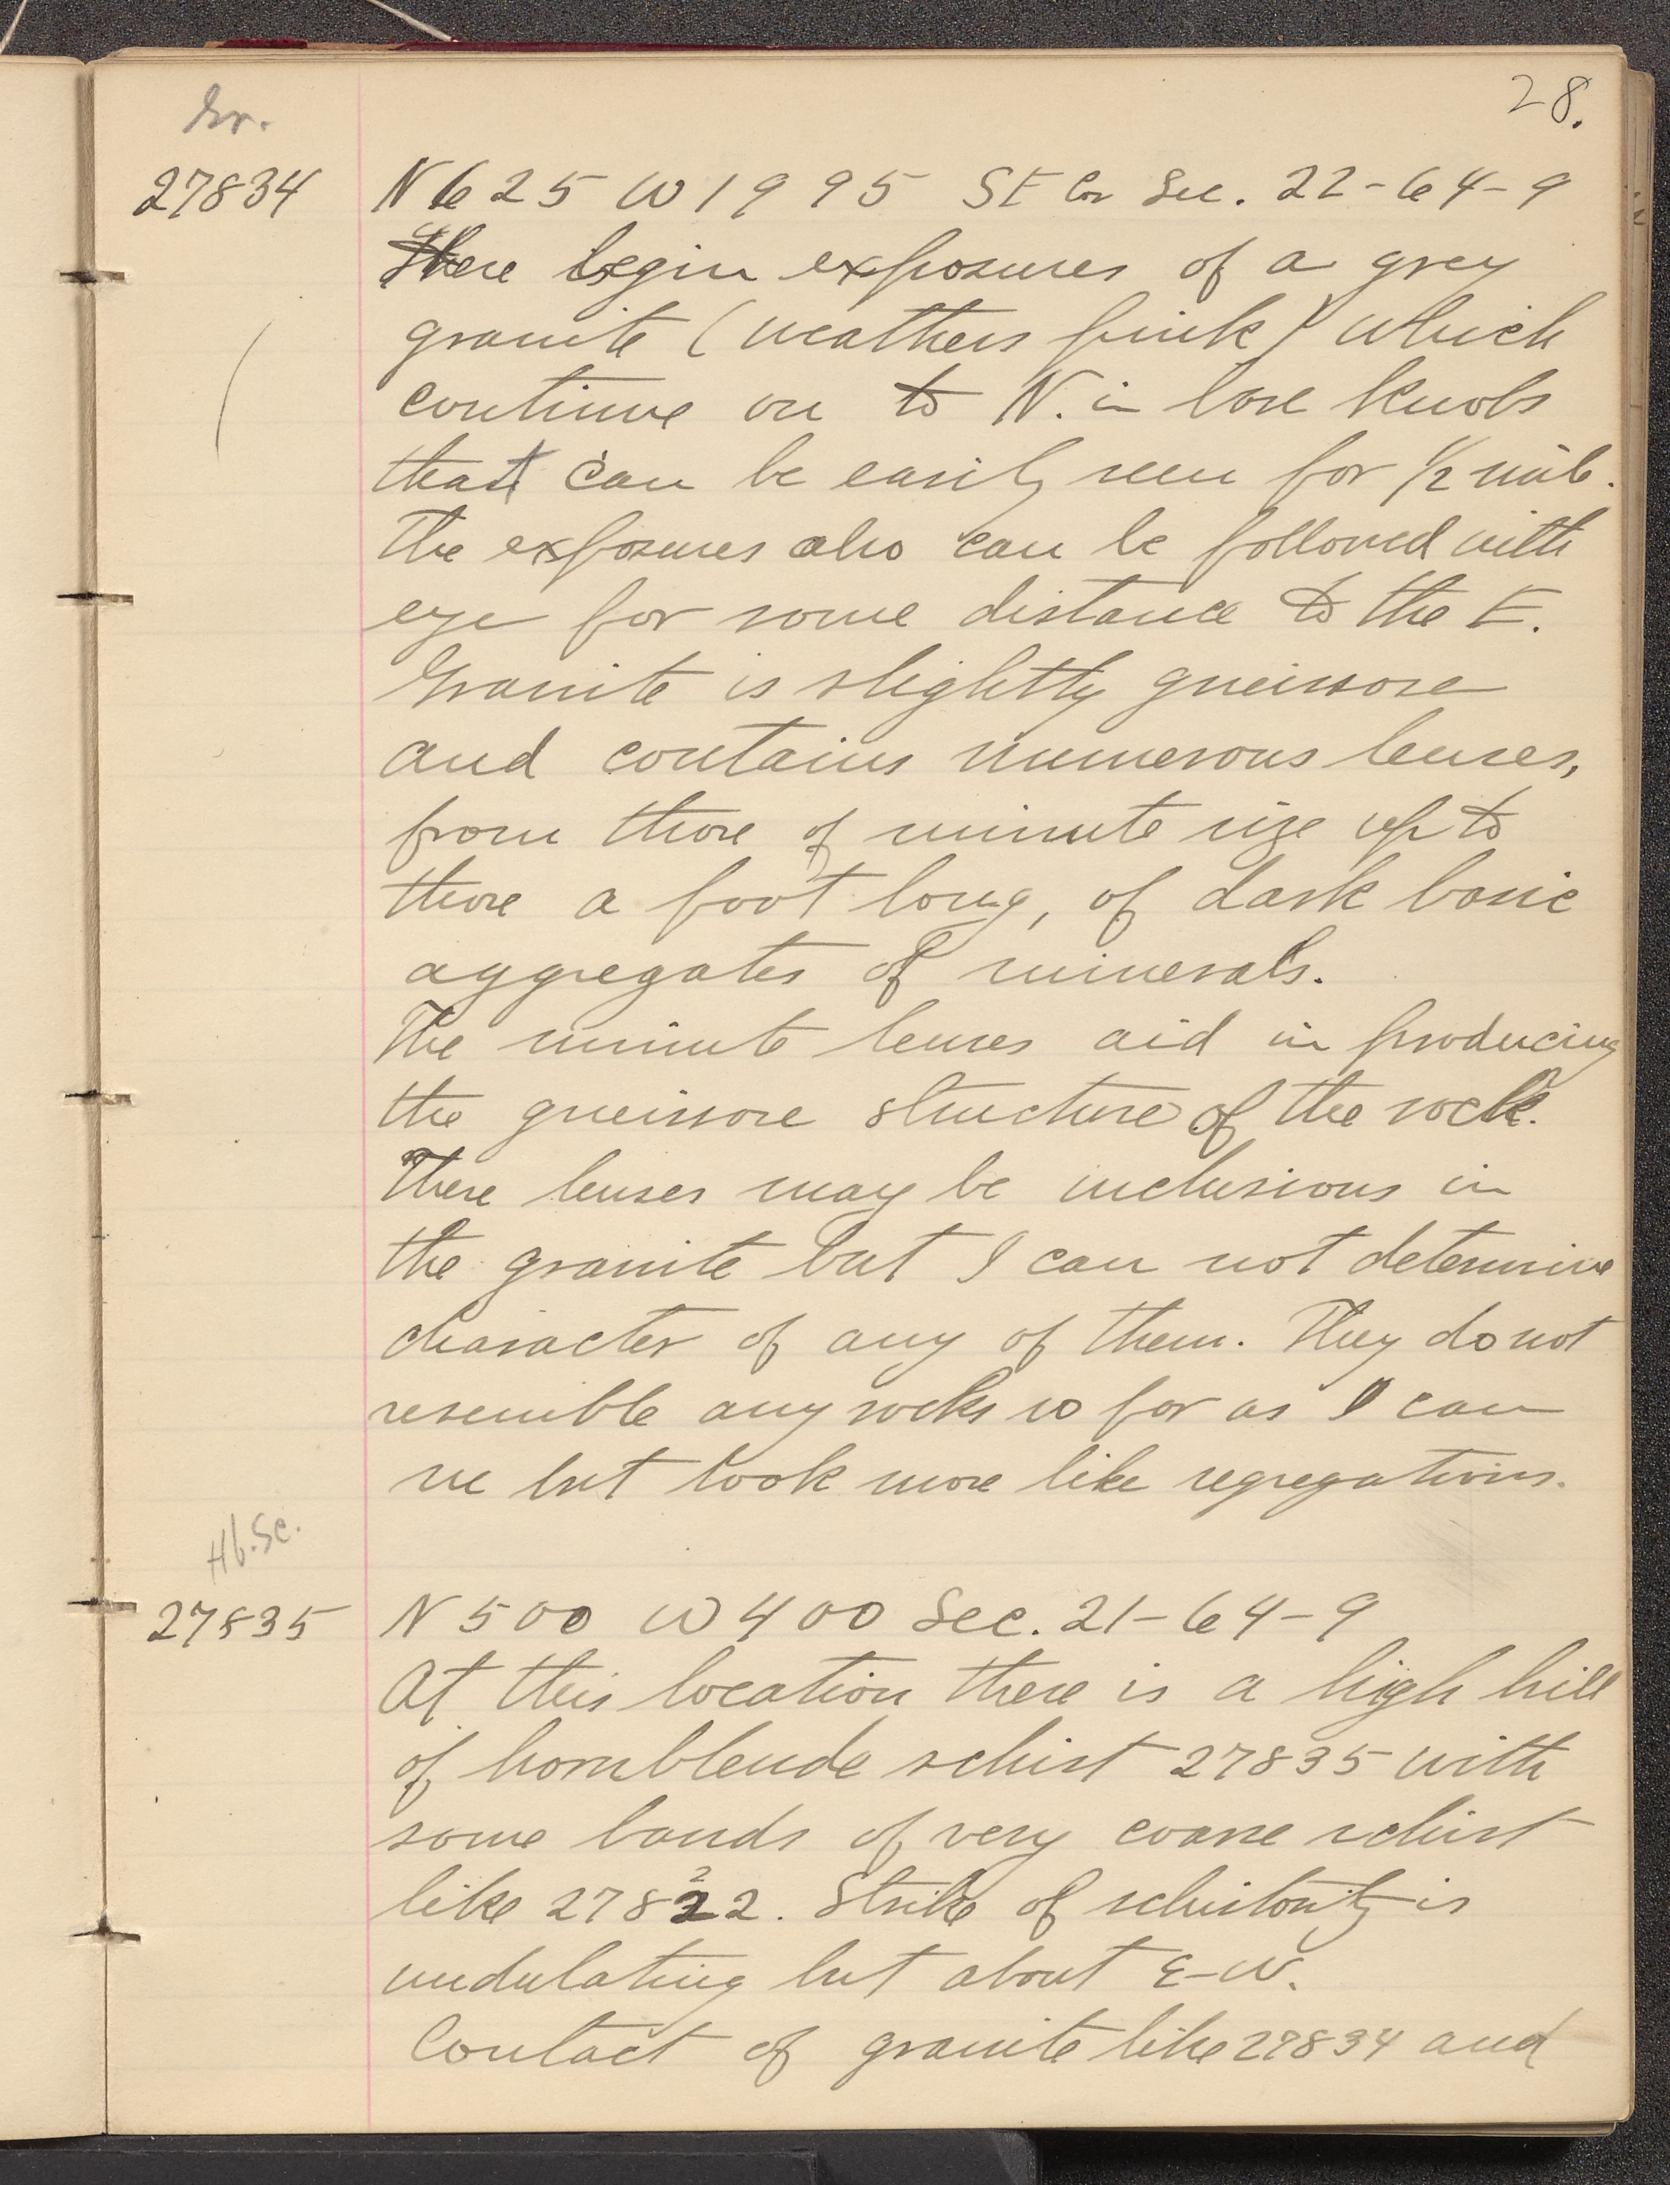 28.
Gr.
27834 N 625 W 1995 SE Cor Sec. 22-64-9
Here begin exposures of a grey
granite (weathers pink) which
continue on to N. in bare knobs
that can be easily seen for 1/2 mile.
The exposures also can be followed with
eye for some distance to the E.
Granite is slightly gneissose
and contains numerous lenses,
from those of minute size up to
those a foot long, of dark basic
aggregates of minerals.
The minute lenses aid in producing
the gneissose structure of the rock.
These lenses may be inclusions in
the granite but I can not determine
character of any of them. They do not
resemble any rocks so far as I can
see but look more like segregations.
Hb. Sc.
27835 N 500 W 400 Sec. 21-64-9
At this location there is a high hill
of hornblende schist 27835 with
some bands of very coarse schist
like 27822. Strike of schistosity is
undulating but about E-W.
Contact of granite like 27834 and